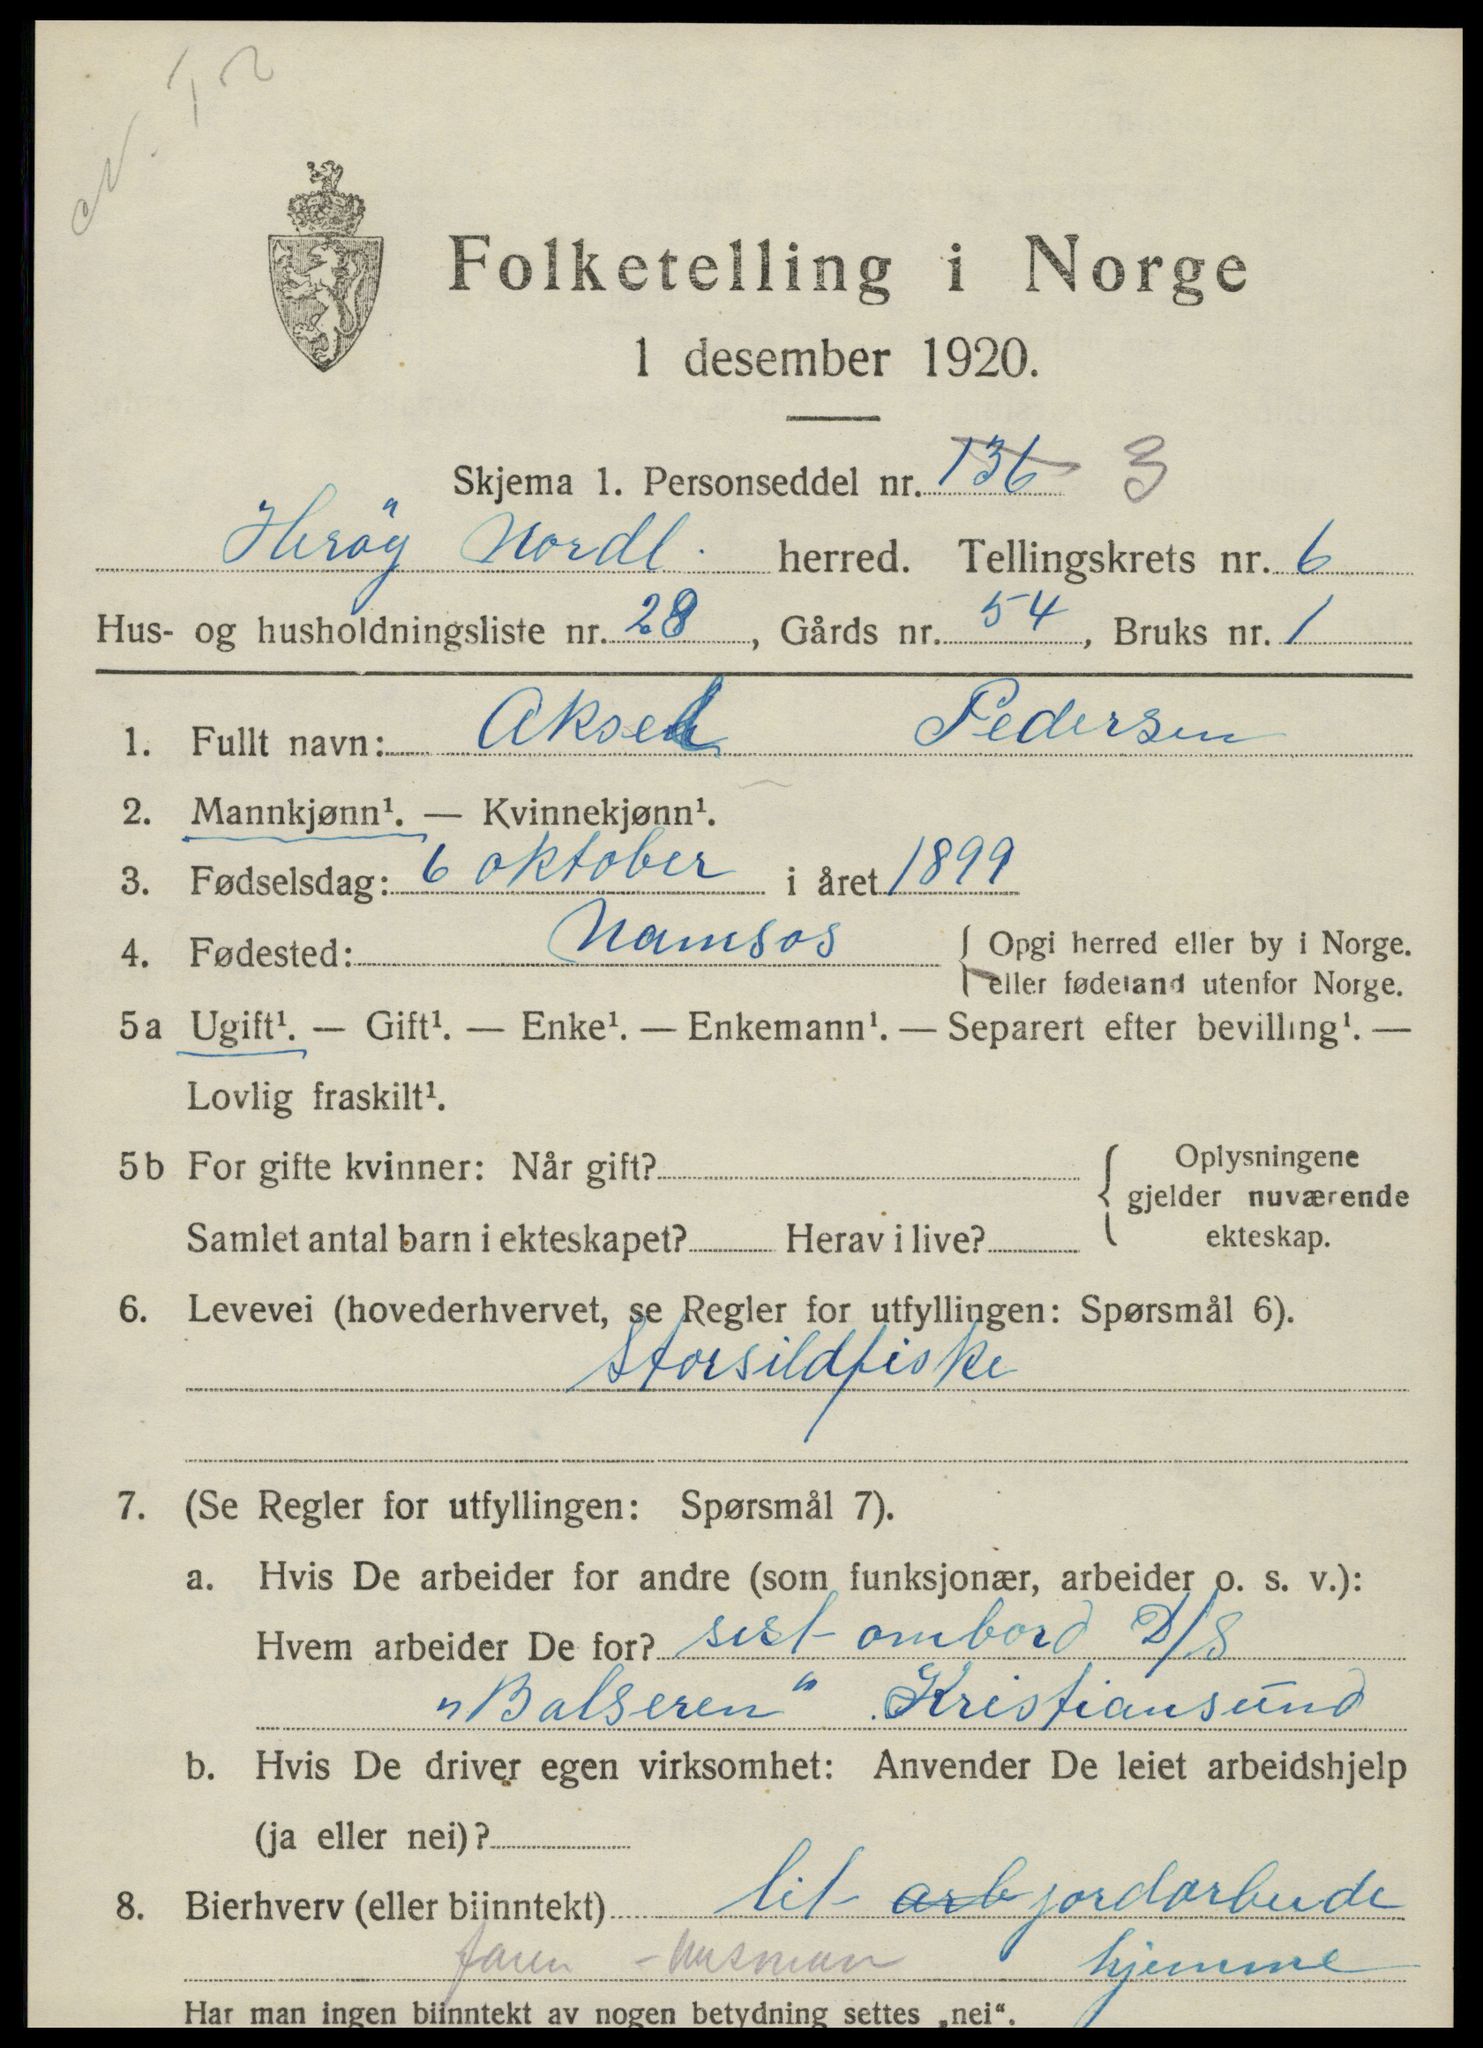 N. T 2
Folketelling i Norge
1 desember 1920.
Skjema 1. Personseddel nr. 136 3
Herøy Nordl. herred. Tellingskrets nr. 6
Hus- og husholdningsliste nr. 28, Gårds nr. 54, Bruks nr. 1
1. Fullt navn: Aksel Pedersen
2. Mannkjønn¹. — Kvinnekjønn¹.
3. Fødselsdag: 6 oktober i året 1899
4. Fødested: Namsos { Opgi herred eller by i Norge.
eller fødeland utenfor Norge.
5a Ugift¹. — Gift¹. — Enke¹. — Enkemann¹. — Separert efter bevilling¹. —
Lovlig fraskilt¹.
5b For gifte kvinner: Når gift?
Samlet antal barn i ekteskapet? Herav i live?
{ Oplysningene
gjelder nuværende
ekteskap.
6. Levevei (hovederhvervet, se Regler for utfyllingen: Spørsmål 6).
Storsildfiske
7. (Se Regler for utfyllingen: Spørsmål 7).
a. Hvis De arbeider for andre (som funksjonær, arbeider o. s. v.):
Hvem arbeider De for? sist ombord D/S
„Balseren" Kristiansund
b. Hvis De driver egen virksomhet: Anvender De leiet arbeidshjelp
(ja eller nei)?
8. Bierhverv (eller biinntekt) lit arb jordarbeide
faren - husman hjemme
Har man ingen biinntekt av nogen betydning settes „nei“.